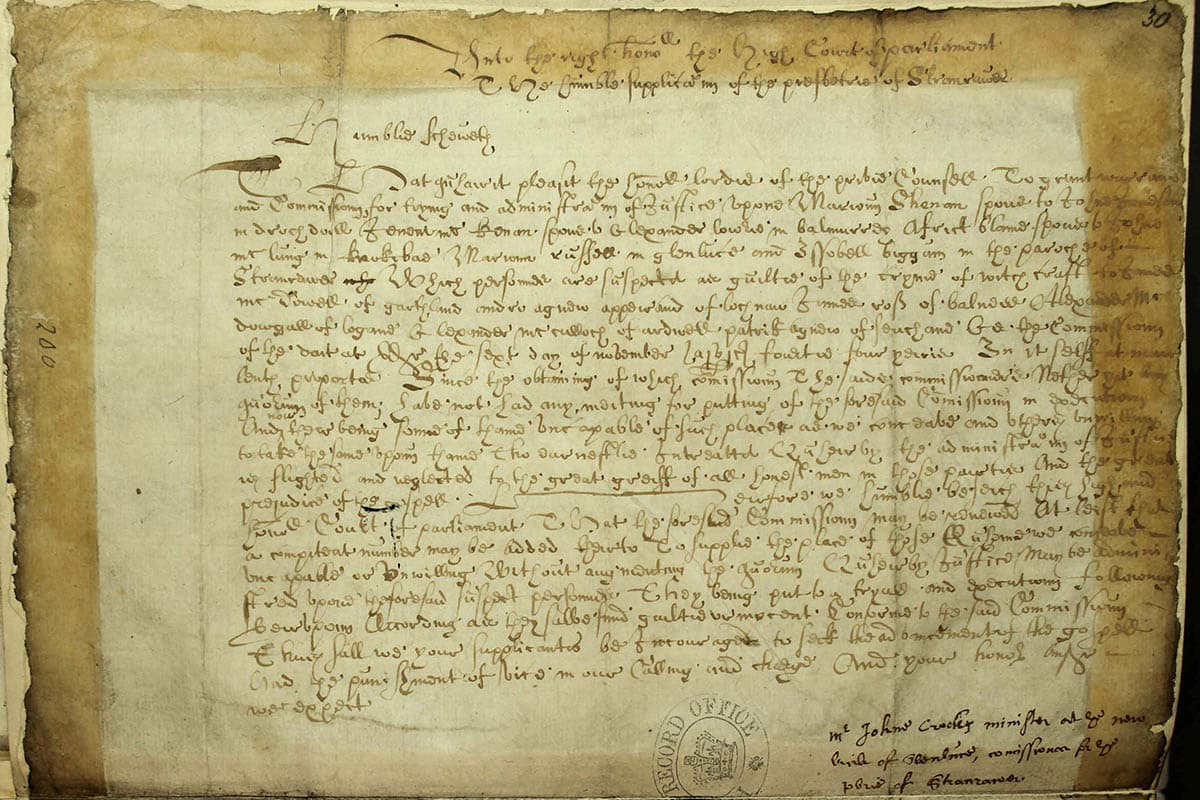 30
Unto the right hono^ll the High Court of parliament
The humble supplica^un of the presbetrie of Stranraver
Humblie scheweth
That quhair it pleasit the hono^ll lordis of the privie Counsell To grant warrand
and Commissioun for trying and administra^un of Justice upone Marioun Shenan spous to Johne
in drochdoill Jenent mc Kenan spous to Alexander lowrie in balmurree Africk blame spous to Johne
mc lung in Marioun russell in glenluce and Issobell biggam in the paroche of
Stranraver Which personnes are suspected as guiltie of the cryme of witchcraft to James
mc Dowell of garthland andro agnew appeirand of lochnaw James ross of balneill Alexander Mc
dowgall of logane Alexander mc culloch of ardwell patrik agnew of seuchand &c the Commissioun
of the dait at the sext day of november Jajvjcj fourtie four yeiris In it selff at mair
lenth proportis Since the obtaining of which comissioun The saids commissioneris Nather
quorum of them have not had any meiting for putting of the foresaid Comissioun in executioun
And ther now being some of thame uncapable of such places as we conceave and others unwilling
to take the same upoun thame tho earnestlie Intreated Quheirby the administra^un of Justice
is slighted and neglected to the great greiff of all honest men in those pairtis And the great
prejudice of the gospell Heirfore we humblie beseich this high and
hono^ll Court of parliament That the foresaid Commissioun may be renewed At leist that
a competent number may be added theirto To supplie the place of those Quhome we conceave
uncapable or Unwilling Without augmenting the quorum Quheirby Justice May be admini
stred upone the foresaid suspect persounes They being put to a tryall and executioun following
heirupoun According as they salbe fund guiltie or innocent Conforme to the said Commissioun
Thus sall we your supplicantis be Incouraged to seek the advancement of the gospell
And the punishment of vice in our calling and charge And your hono^rs ans^r
we expect
200
RECORD OFFICE
Mr Johne Crocket minister at ye new
kirk of Glenluce, comissioner for ye
pbrie of Stranraver